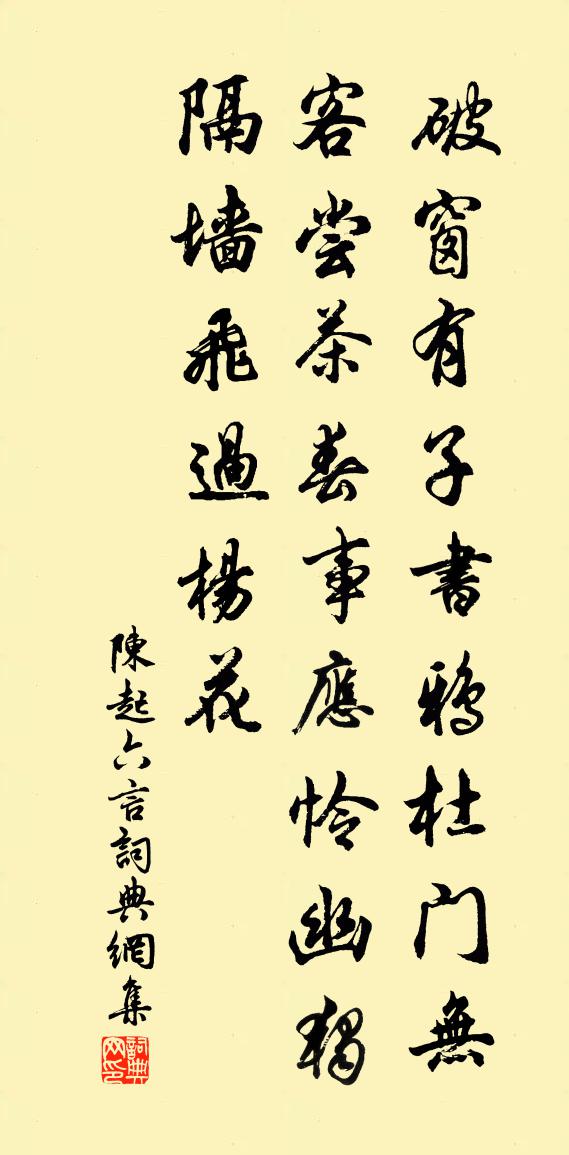 破窗有子書鴉杜門無
客尝茶春事應怜幽獨
隔墙飛過楊花
陳起六言詞典網集
詞典网印